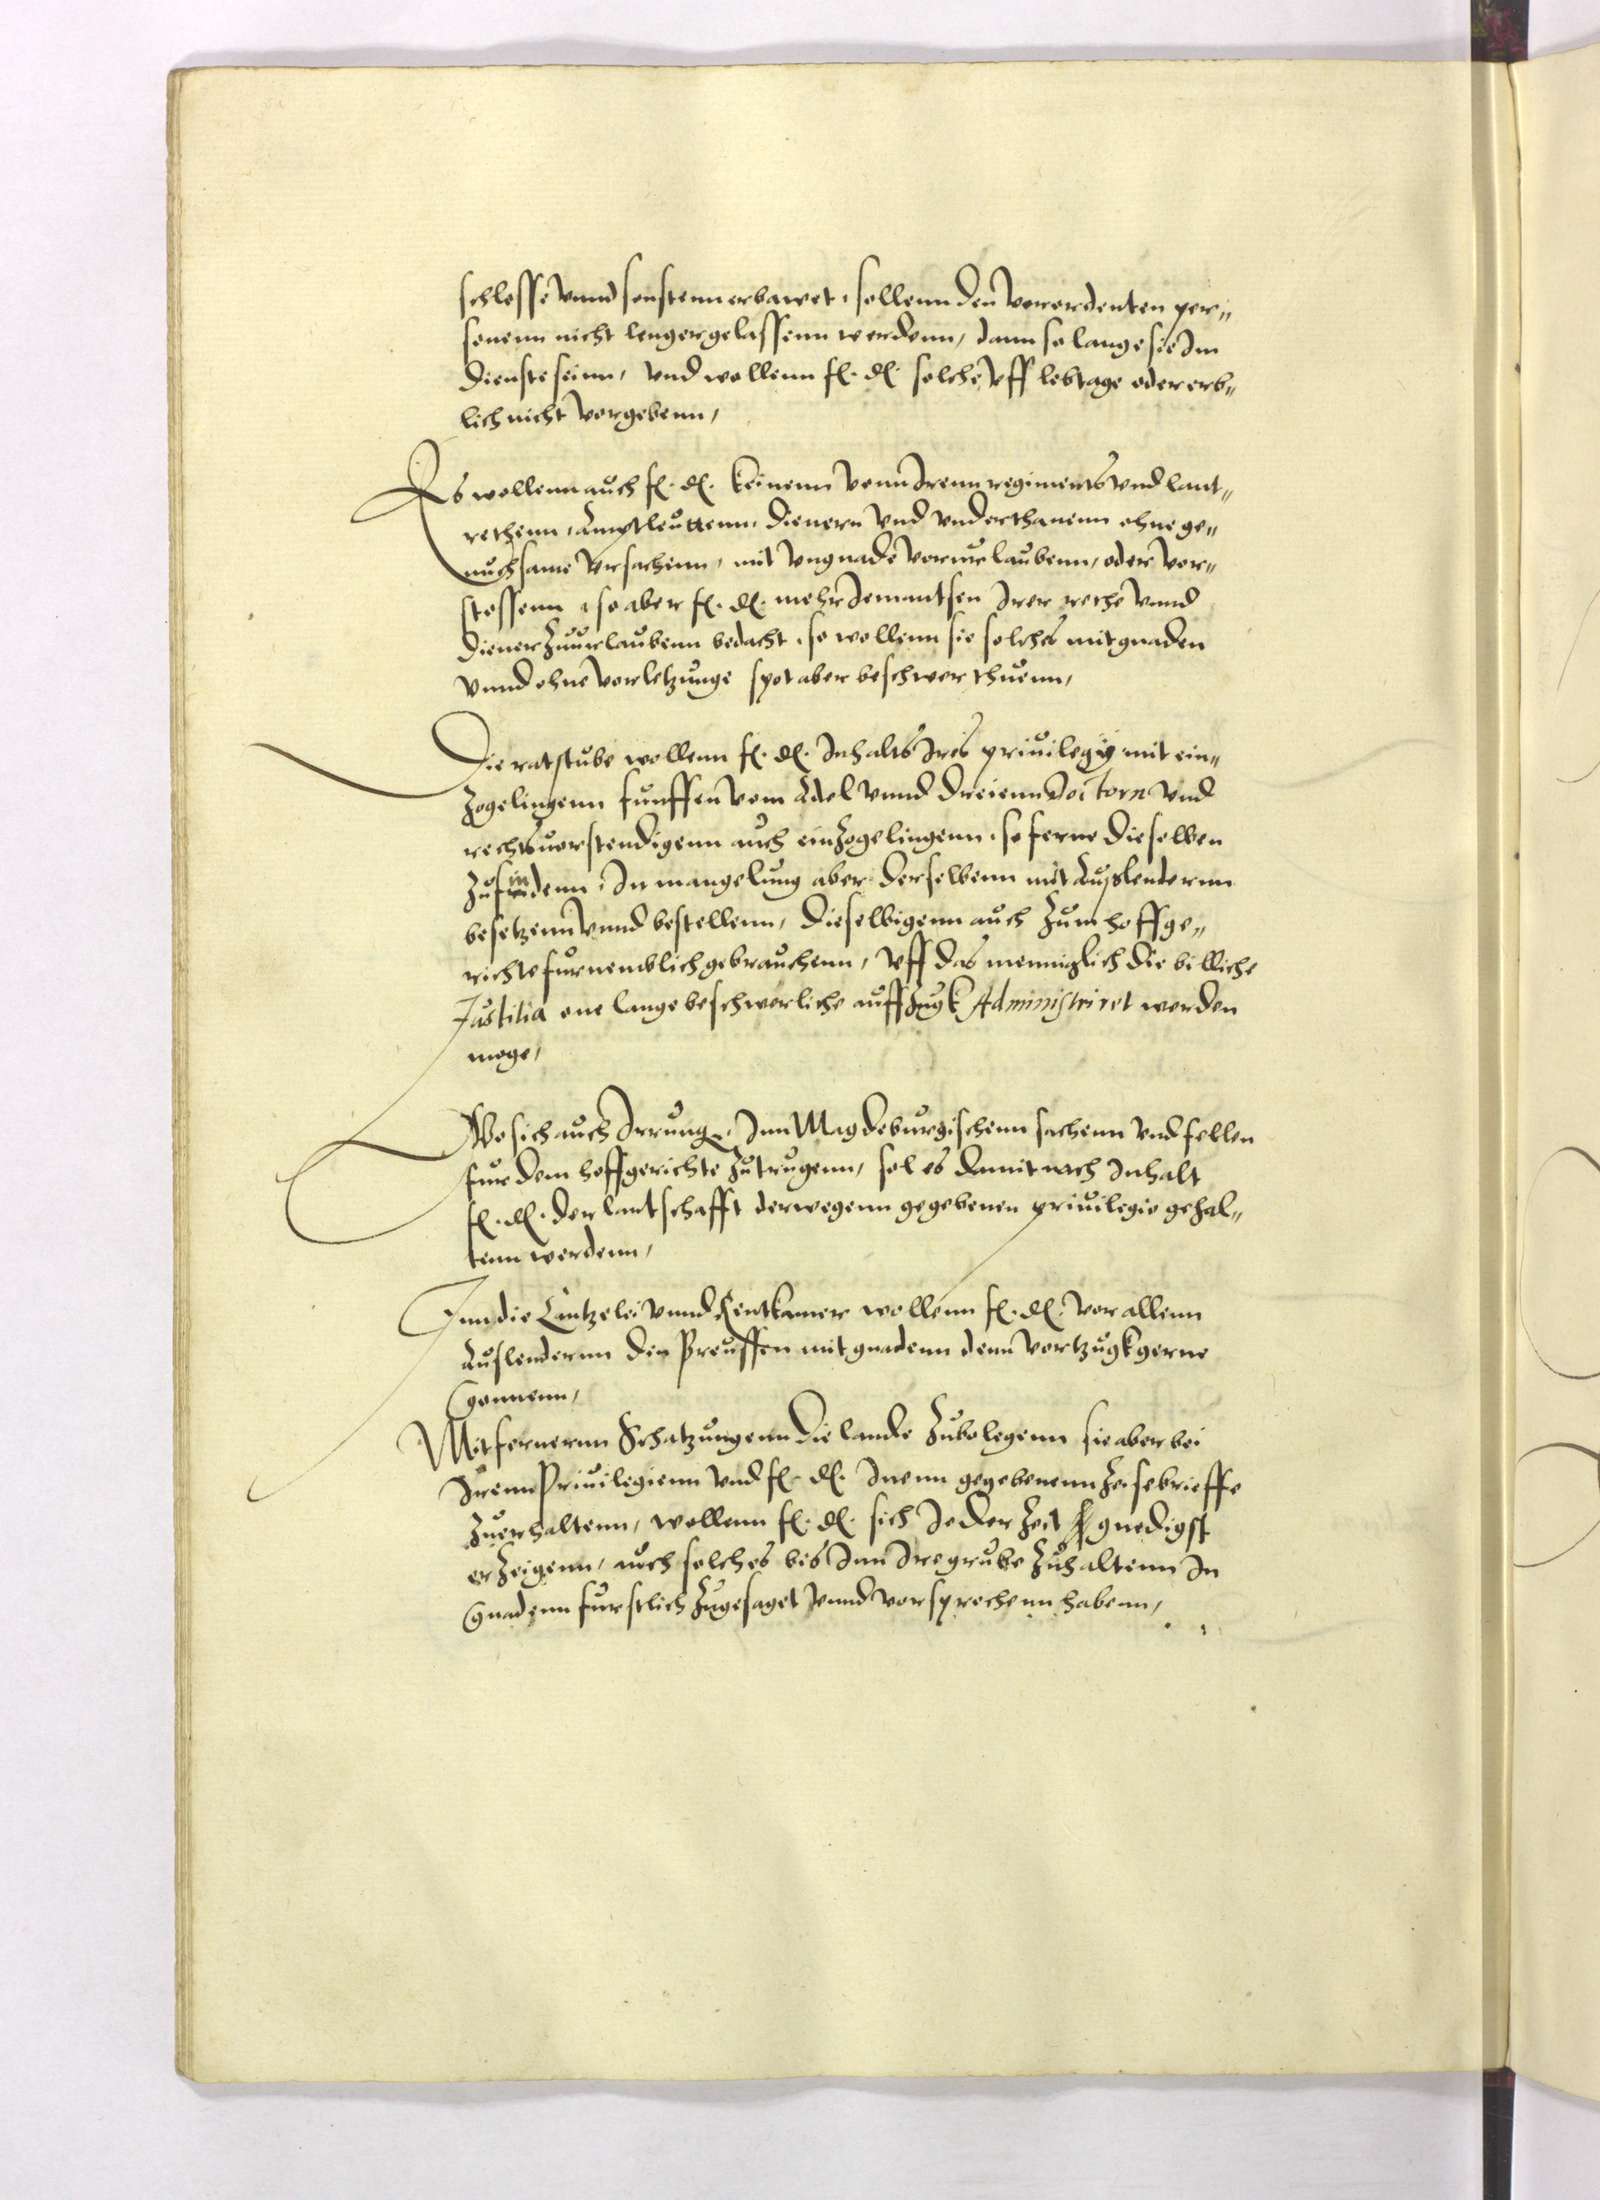 schlosse vnnd sonstenn erbawet, sollenn den vorordenten per„
sonenn nicht lenger gelassenn werdenn, dann so lange sie Im
dienste seinn, vnd wollenn f. d. solche vff lebtage oder erb„
lich nicht vorgebenn,
Es wollenn auch f. d. keinenn vonn Irenn regiments vnd lant„
rethenn, Amptleuttenn, dienern vnd vnderthanenn ohne ge„
nuchsame vrsachenn, mit vngnade vorurlaubenn, oder vor„
stossenn, so aber f. d. mehr Iemantsen Irer rethe vnnd
diener zuurlaubenn bedacht, so wollenn sie solchs mit gnaden
vnnd ohne vorletzunge spot aber beschwer thuenn,
Die ratstube wollenn f. d. Inhalts Ires priuilegij mit ein„
zogelingenn funffen vom Adel vnnd dreienn Doctorn vnd
rechtsuorstendigenn auch einzogelingenn, so ferne dieselben
zufindenn, In mangelung aber derselbenn mit Auslendernn
besetzenn vnnd bestellenn, dieselbigenn auch zum hoffge„
richte furnemblich gebrauchenn, vff das menniglich die billiche
Justitia one lange beschwerliche auffzugk Administriret werden
moge,
Wo sich auch Irrung, Inn Magdeburgischenn sachenn vnd fellen
fur dem hoffgerichte zutrugenn, sol es damit nach Inhalt
f. d. der lantschafft derwegenn gegebenen priuilegio gehal„
tenn werdenn,
Inn die Cantzelei vnnd Rentkamer wollenn f. d. vor allenn
Auslendernn den Preussen mit gnadenn denn vortzugk gerne
gonnenn,
Mit fernernn Schatzungenn die lande zubelegenn sie aber bei
Irenn Priuilegienn vnd f. d. Inenn gegebenenn zeisebrieffe
zuerhaltenn, wollenn f. d. sich Ieder zeit gnedigst
erzeigenn, auch solches bis Inn Ire grube zuhaltenn In
gnadenn furstlich zugesaget vnnd vorsprochenn habenn,